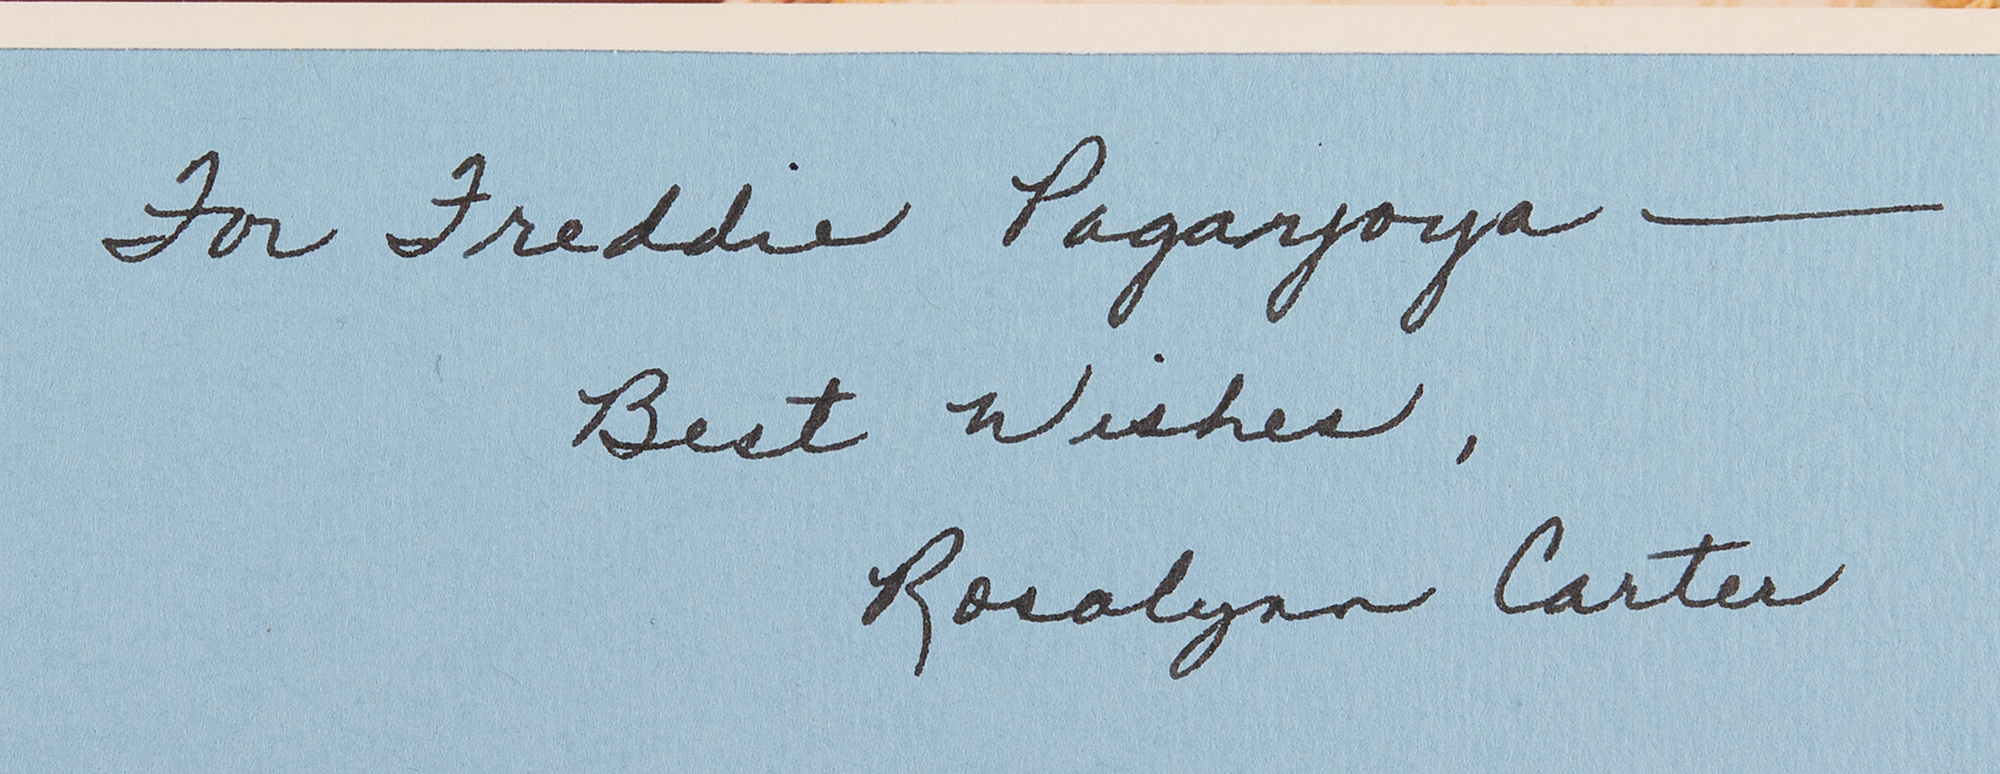 For Freddie Pagarjoya —
Best Wishes,
Rosalynn Carter